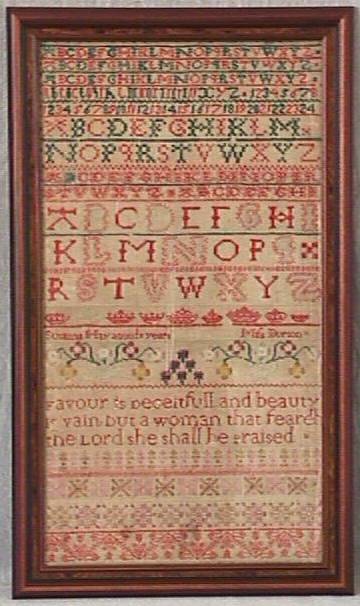 ABCDEFGHIKLMNOPQRSTVWXYZ
ABCDEFGHIKLMNOPQRSTVWXYZ
ABCDEFGHIKLMNOPQRSTVWXYZ
XYZ 12345678
1234567891011121314151617181920212223 24
ABCDEFGHIKLM
NOPQRSTVWXYZ
ABCDEFGHIKLMNOPQRS
TVWXYZ ABCDEFGHI
ABCDEFGHI
KLMNOPQ
RSTVWXYZ
years Miss
Favour is Deceitfull and beauty
is vain but a woman that feareth
the Lord she shall be Praised